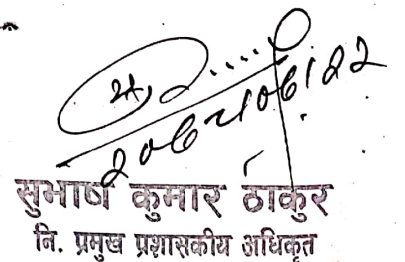 सुभाष कुमार ठाकुर
नि. प्रमुख प्रशासकीय अधिकृत